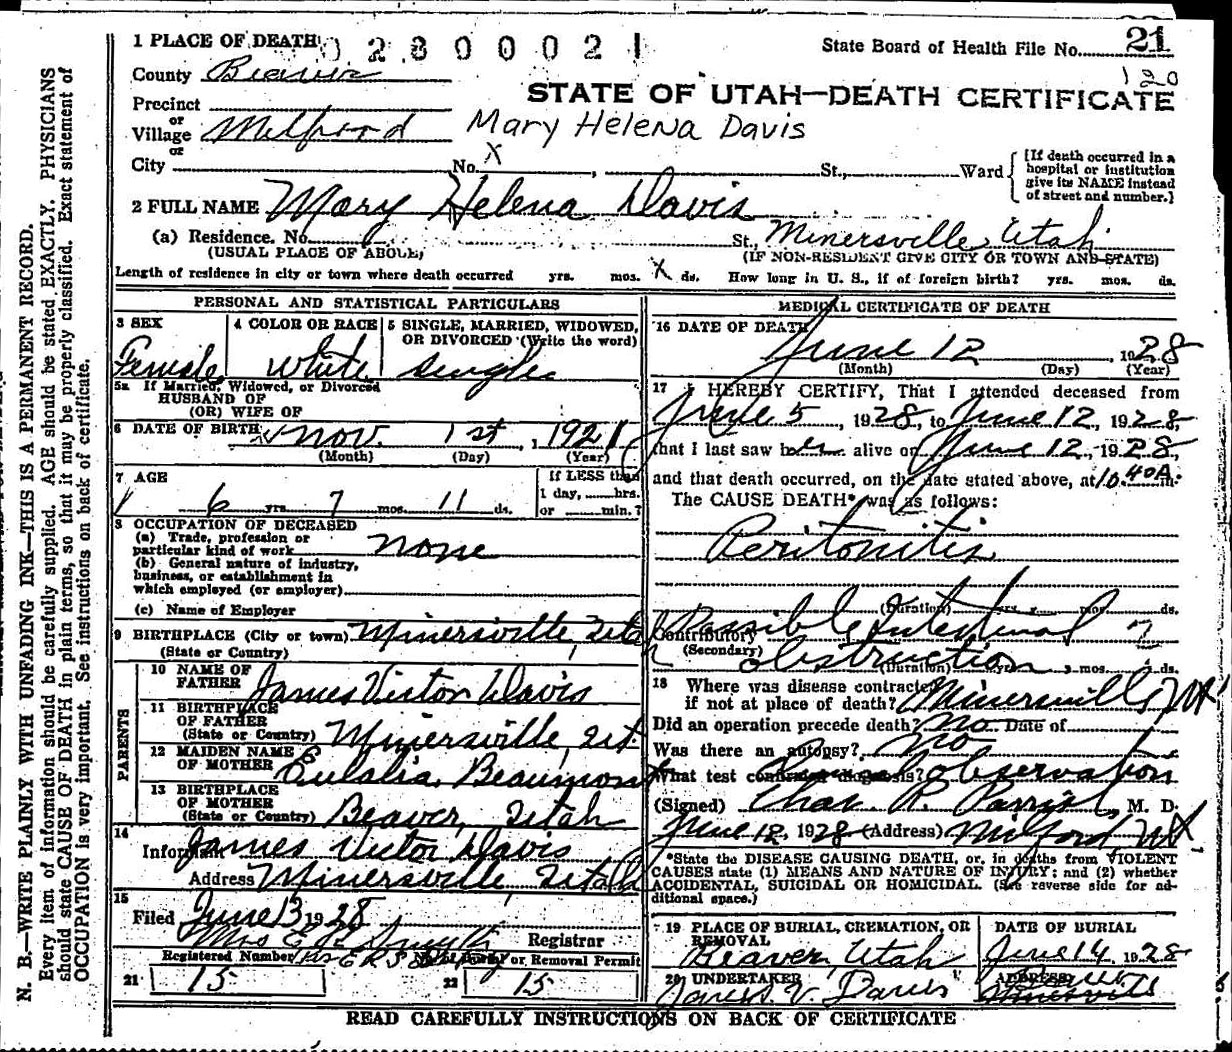 1 PLACE OF DEATH 0 2 8 0 0 0 2 1
State Board of Health File No. 21
120
County Beaver
STATE OF UTAH—DEATH CERTIFICATE
Precinct
or
Village Milford
Mary Helena Davis
or
City No. X St., Ward
{If death occurred in a
hospital or institution
give its NAME instead
of street and number.}
2 FULL NAME Mary Helena Davis
(a) Residence. No. St., Minersville, Utah
(USUAL PLACE OF ABODE) (IF NON-RESIDENT GIVE CITY OR TOWN AND STATE)
Length of residence in city or town where death occurred yrs. mos. X ds. How long in U. S., if of foreign birth? yrs. mos. ds.
PERSONAL AND STATISTICAL PARTICULARS
3 SEX
Female
4 COLOR OR RACE
White
5 SINGLE, MARRIED, WIDOWED,
OR DIVORCED (Write the word)
single
5a If Married, Widowed, or Divorced
HUSBAND OF
(OR) WIFE OF
6 DATE OF BIRTH Nov. 1st, 1921
(Month) (Day) (Year)
7 AGE
6 yrs. 7 mos. 11 ds.
If LESS than
1 day, hrs.
or min.?
8 OCCUPATION OF DECEASED
(a) Trade, profession or
particular kind of work none
(b) General nature of industry,
business, or establishment in
which employed (or employer)
(c) Name of Employer
9 BIRTHPLACE (City or town) Minersville, Utah
(State or Country)
PARENTS
10 NAME OF
FATHER James Victor Davis
11 BIRTHPLACE
OF FATHER
(State or Country) Minersville, Ut.
12 MAIDEN NAME
OF MOTHER Eulalia Beaumont
13 BIRTHPLACE
OF MOTHER
(State or Country) Beaver, Utah
14
Informant James Victor Davis
Address Minersville Utah
15
Filed June 13 1928
Mrs E R Registrar
Registered Number or Removal Permit
21 15 22 15
MEDICAL CERTIFICATE OF DEATH
16 DATE OF DEATH
June 12, 1928
(Month) (Day) (Year)
17 I HEREBY CERTIFY, That I attended deceased from
June 5, 1928, to June 12, 1928,
that I last saw her alive on June 12, 1928,
and that death occurred, on the date stated above, at 10.40A m.
The CAUSE DEATH* was as follows:
Peritonitis
(Duration) yrs. mos. ds.
Contributory Possible Intestinal
(Secondary) obstruction (Duration) mos. 7 ds.
18 Where was disease contracted
if not at place of death? Minersville Ut
Did an operation precede death? No Date of
Was there an autopsy? No
What test confirmed diagnosis? observation
(Signed) Chas. P. Parrish, M. D.
June 12, 1928 (Address) Milford, Ut
*State the DISEASE CAUSING DEATH, or, in deaths from VIOLENT
CAUSES state (1) MEANS AND NATURE OF INJURY; and (2) whether
ACCIDENTAL, SUICIDAL OR HOMICIDAL. (See reverse side for ad-
ditional space.)
19 PLACE OF BURIAL, CREMATION, OR
REMOVAL
Beaver, Utah
DATE OF BURIAL
June 14, 1928
20 UNDERTAKER
James V. Davis
ADDRESS
Minersville
READ CAREFULLY INSTRUCTIONS ON BACK OF CERTIFICATE
N. B.—WRITE PLAINLY WITH UNFADING INK—THIS IS A PERMANENT RECORD.
Every item of information should be carefully supplied. AGE should be stated EXACTLY. PHYSICIANS
should state CAUSE OF DEATH in plain terms, so that it may be properly classified. Exact statement of
OCCUPATION is very important. See instructions on back of certificate.